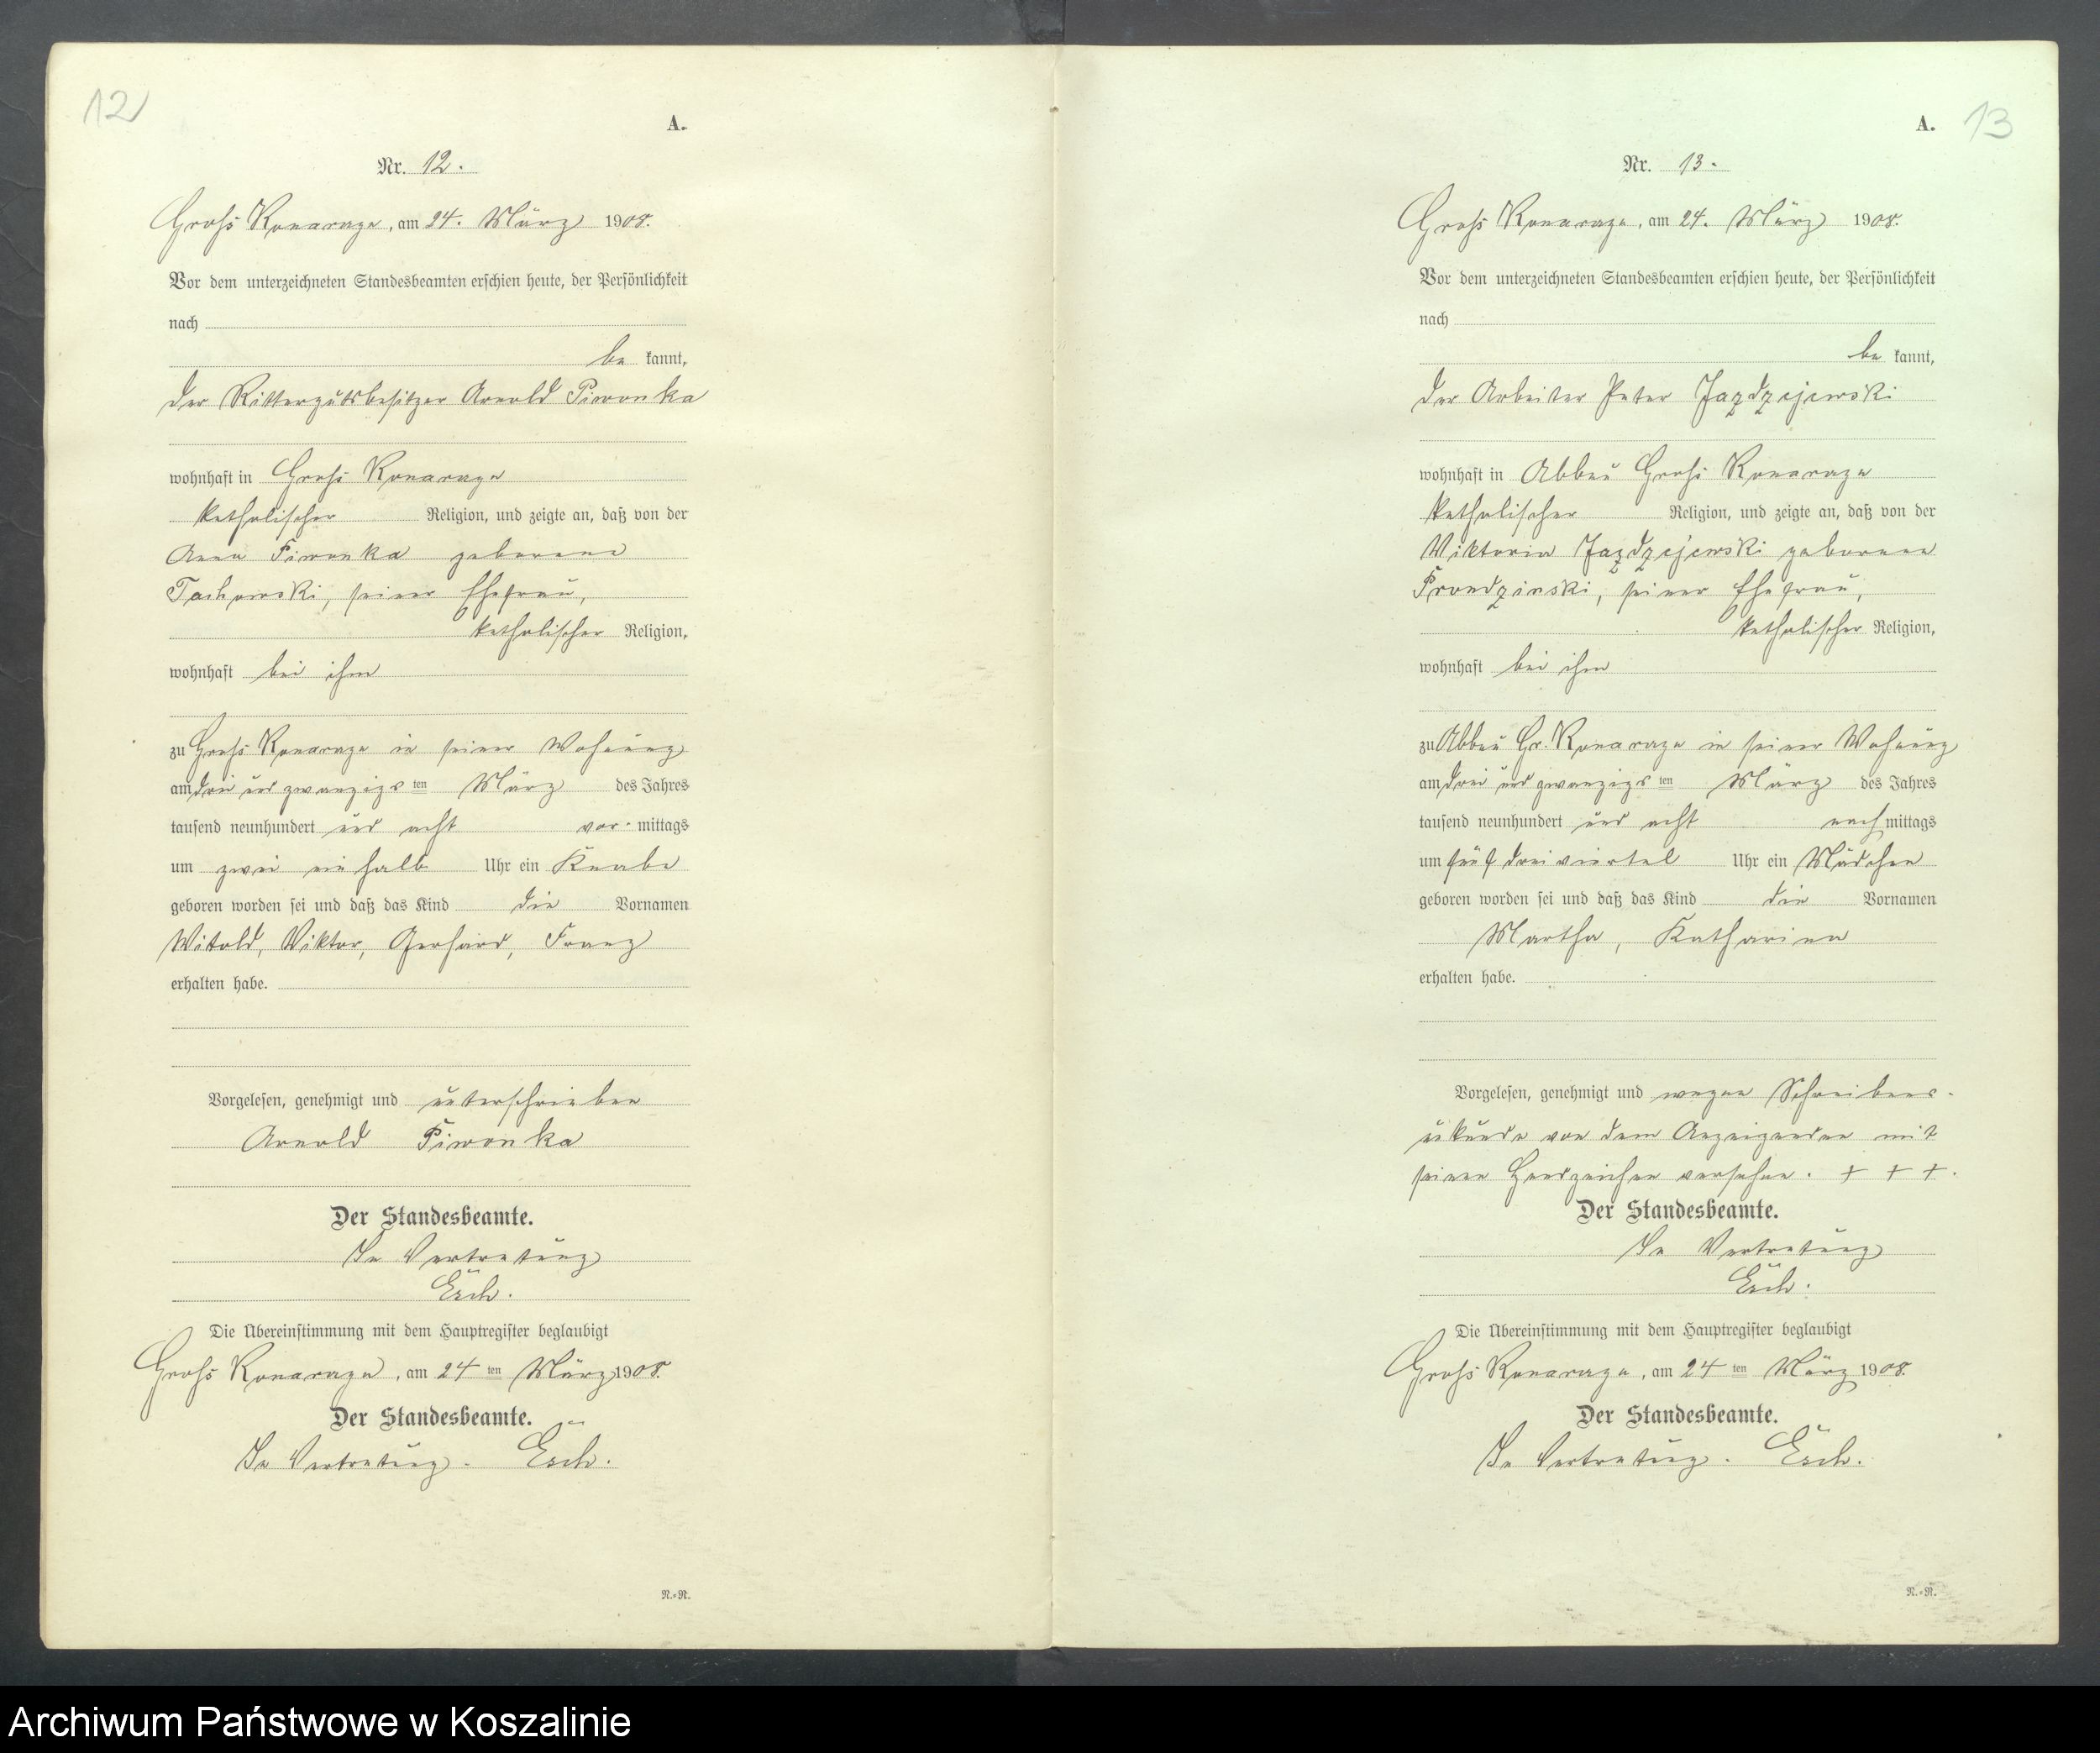 12
A.
Nr. 12.
Groß Konarczyn, am 24. März 1908.
Vor dem unterzeichneten Standesbeamten erschien heute, der Persönlichkeit
nach
be kannt,
der Rittergutsbesitzer Arnold Piwonka
wohnhaft in Groß Konarczyn
katholischer Religion, und zeigte an, daß von der
Anna Piwonka geborene
Tachowski, seiner Ehefrau,
katholischer Religion,
wohnhaft bei ihm
zu Groß Konarczyn in seiner Wohnung
am drei und zwanzigsten März des Jahres
tausend neunhundert und acht vor mittags
um zwei ein halb Uhr ein Knabe
geboren worden sei und daß das Kind die Vornamen
Witold, Viktor, Gerhard, Franz
erhalten habe.
Vorgelesen, genehmigt und unterschrieben
Arnold Piwonka
Der Standesbeamte.
In Vertretung
Esch.
Die Übereinstimmung mit dem Hauptregister beglaubigt
Groß Konarczyn, am 24 ten März 1908.
Der Standesbeamte.
In Vertretung. Esch.
N.=R.
A. 13
Nr. 13.
Groß Konarczyn, am 24. März 1908.
Vor dem unterzeichneten Standesbeamten erschien heute, der Persönlichkeit
nach
be kannt,
der Arbeiter Peter Jazdzejewski
wohnhaft in Abbau Groß Konarczyn
katholischer Religion, und zeigte an, daß von der
Viktoria Jazdzejewski geborenen
Prondzinski, seiner Ehefrau,
katholischer Religion,
wohnhaft bei ihm
zu Abbau Gr. Konarczyn in seiner Wohnung
am drei und zwanzigsten März des Jahres
tausend neunhundert und acht nach mittags
um fünf dreiviertel Uhr ein Mädchen
geboren worden sei und daß das Kind die Vornamen
Martha, Katharina
erhalten habe.
Vorgelesen, genehmigt und wegen Schreibens-
unkunde von dem Anzeigenden mit
seinen Handzeichen versehen. + + +.
Der Standesbeamte.
In Vertretung
Esch.
Die Übereinstimmung mit dem Hauptregister beglaubigt
Groß Konarczyn, am 24 ten März 1908.
Der Standesbeamte.
In Vertretung. Esch.
N.=R.
Archiwum Państwowe w Koszalinie